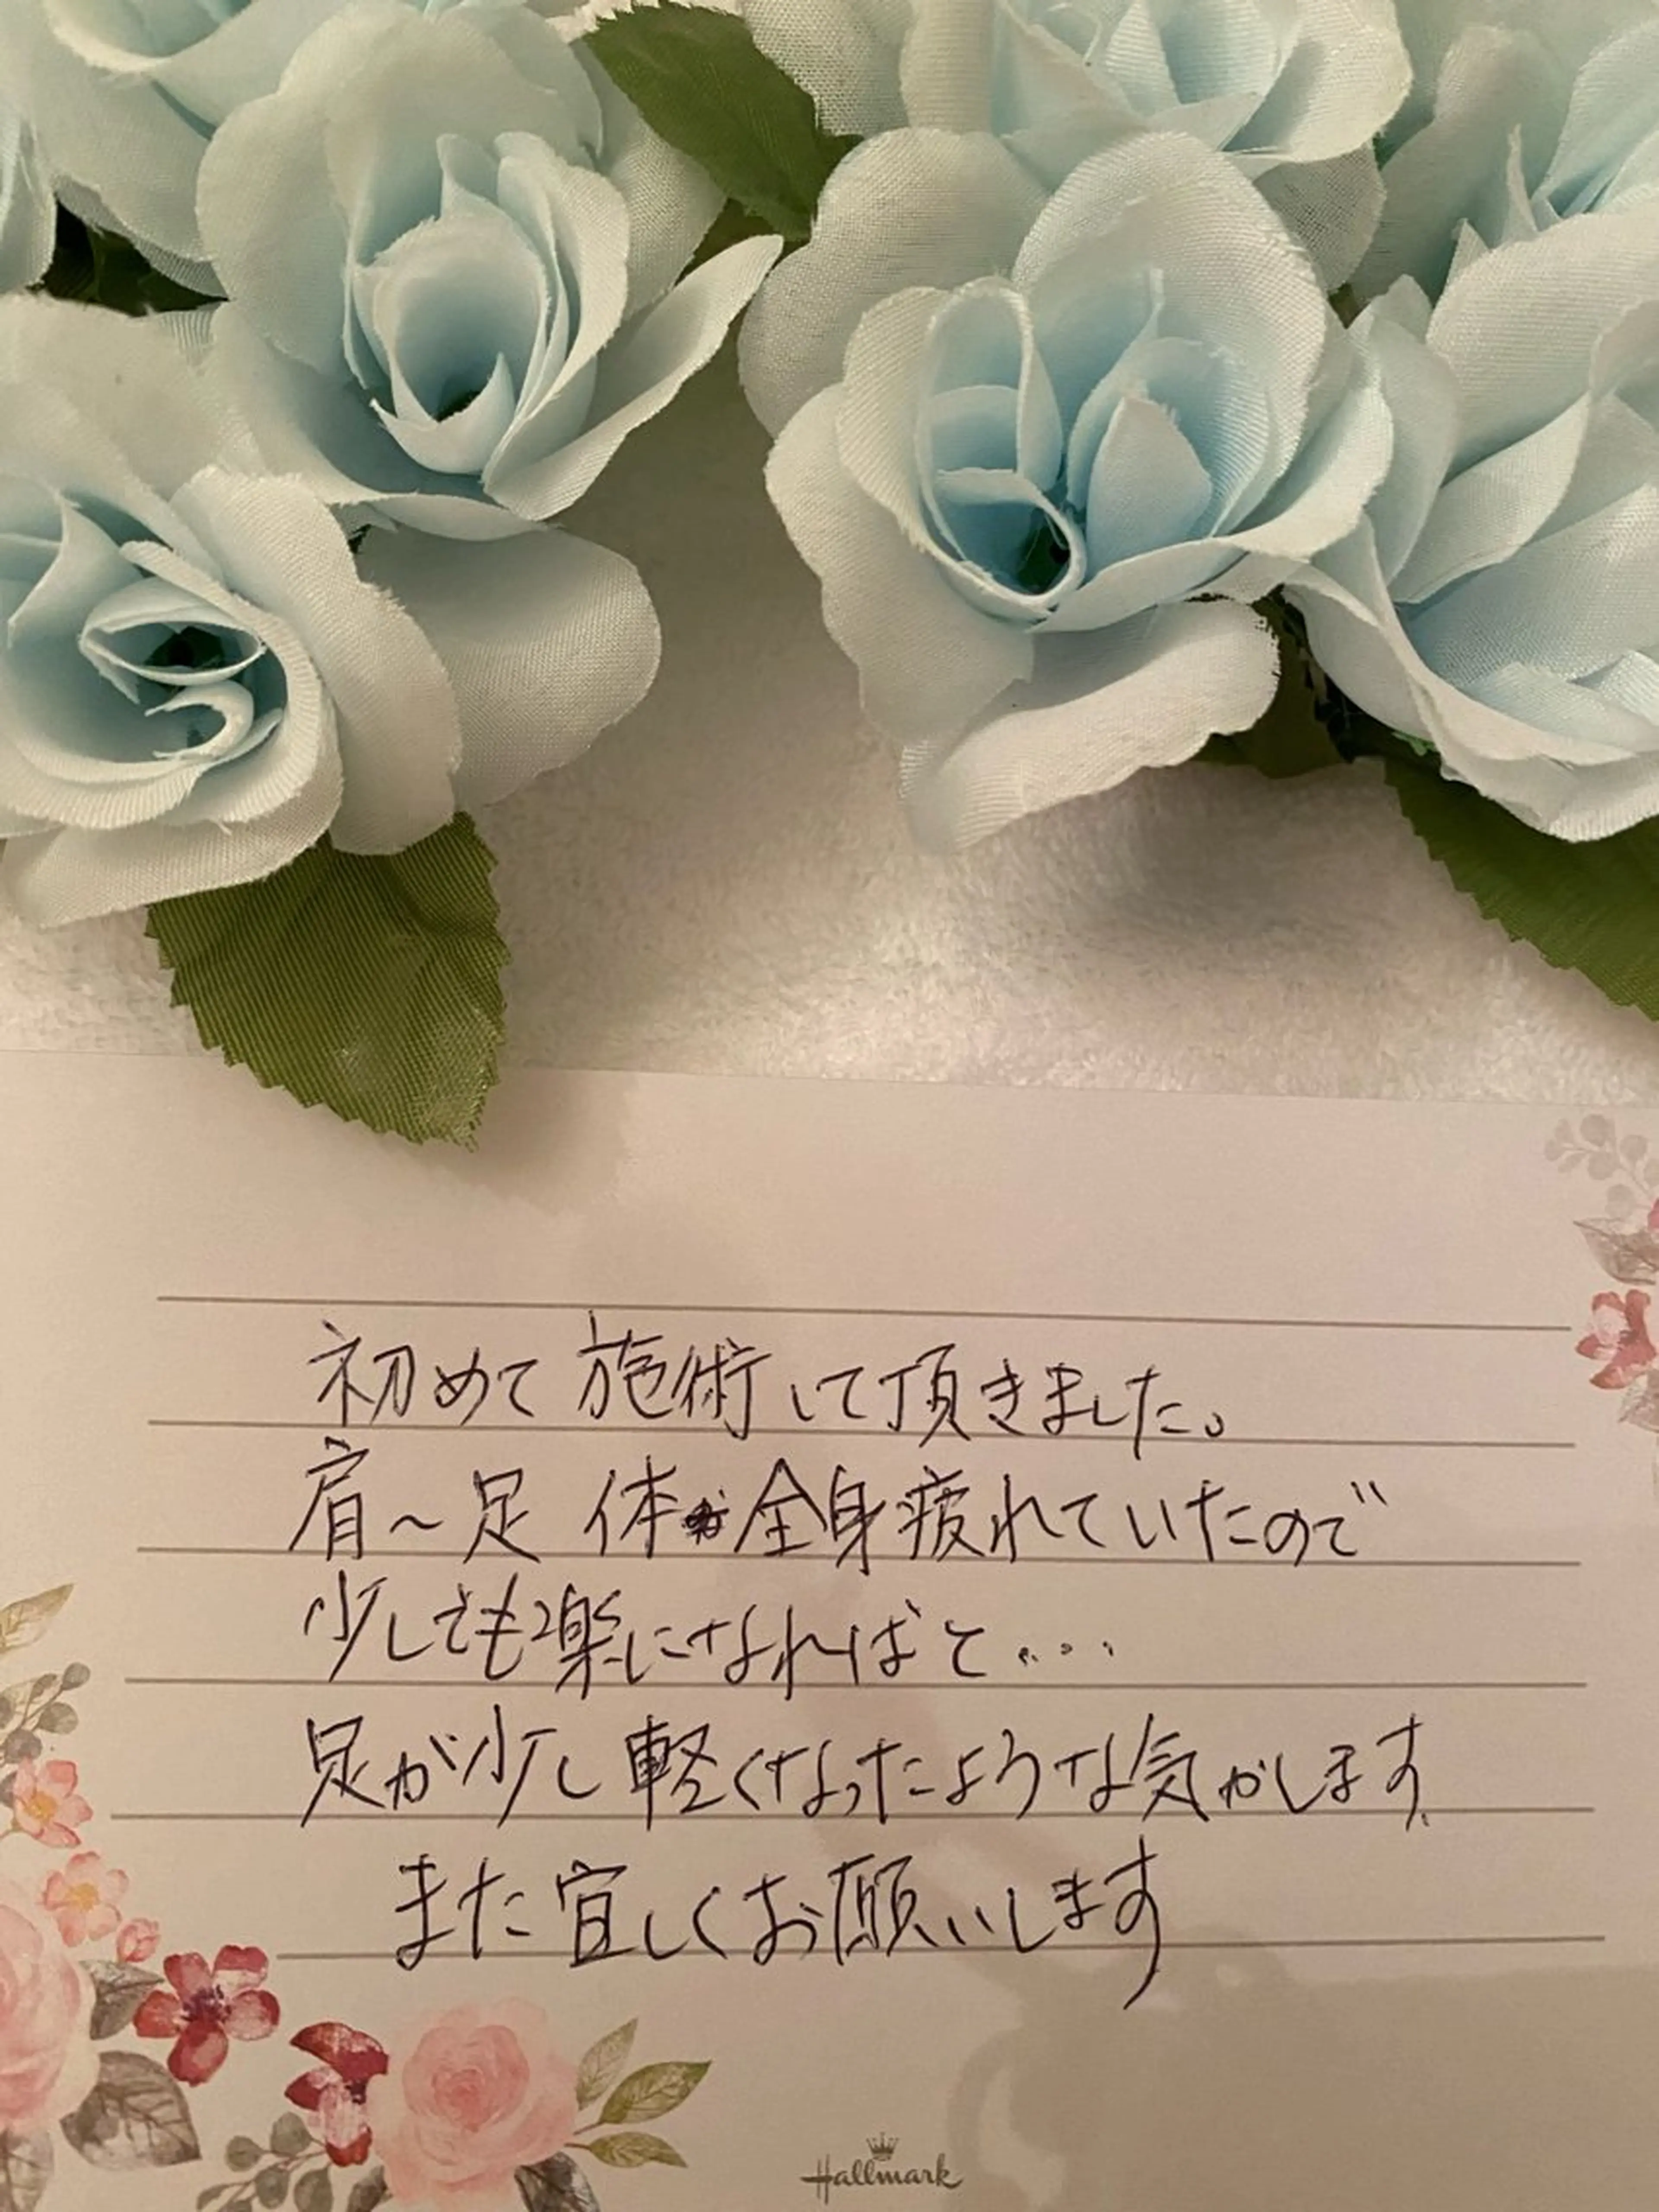 初めて施術して頂きました。
肩〜足 体 全身疲れていたので
少しでも楽になればと...
足が少し軽くなったような気がします
また宜しくお願いします
Hallmark